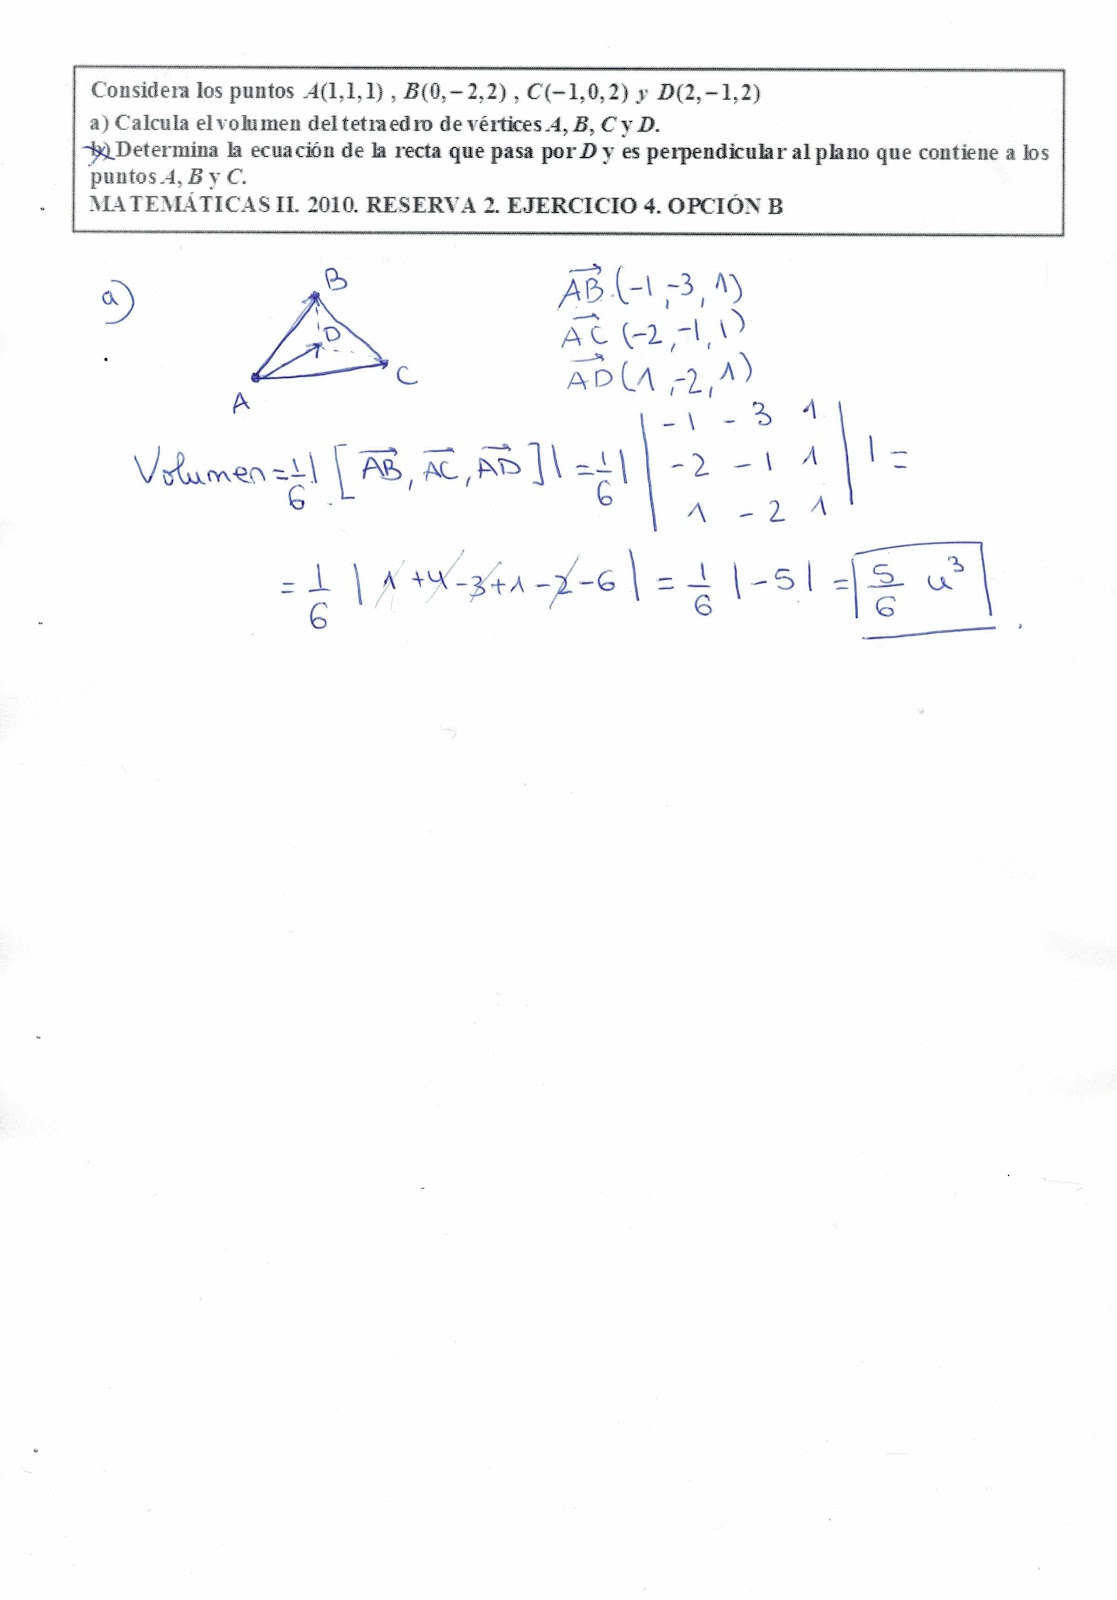 Considera los puntos A(1,1,1) , B(0,−2,2) , C(−1,0,2) y D(2,−1,2)
a) Calcula el volumen del tetraedro de vértices A, B, C y D.
b) Determina la ecuación de la recta que pasa por D y es perpendicular al plano que contiene a los
puntos A, B y C.
MATEMÁTICAS II. 2010. RESERVA 2. EJERCICIO 4. OPCIÓN B
a)
B
D
C
A
AB (-1,-3,1)
AC (-2,-1,1)
AD (1,-2,1)
Volumen = 1/6 | [AB, AC, AD] | = 1/6 | | -1 -3 1
-2 -1 1
1 -2 1 | | =
= 1/6 | 1+4-3+1-2-6 | = 1/6 |-5| = 5/6 u³